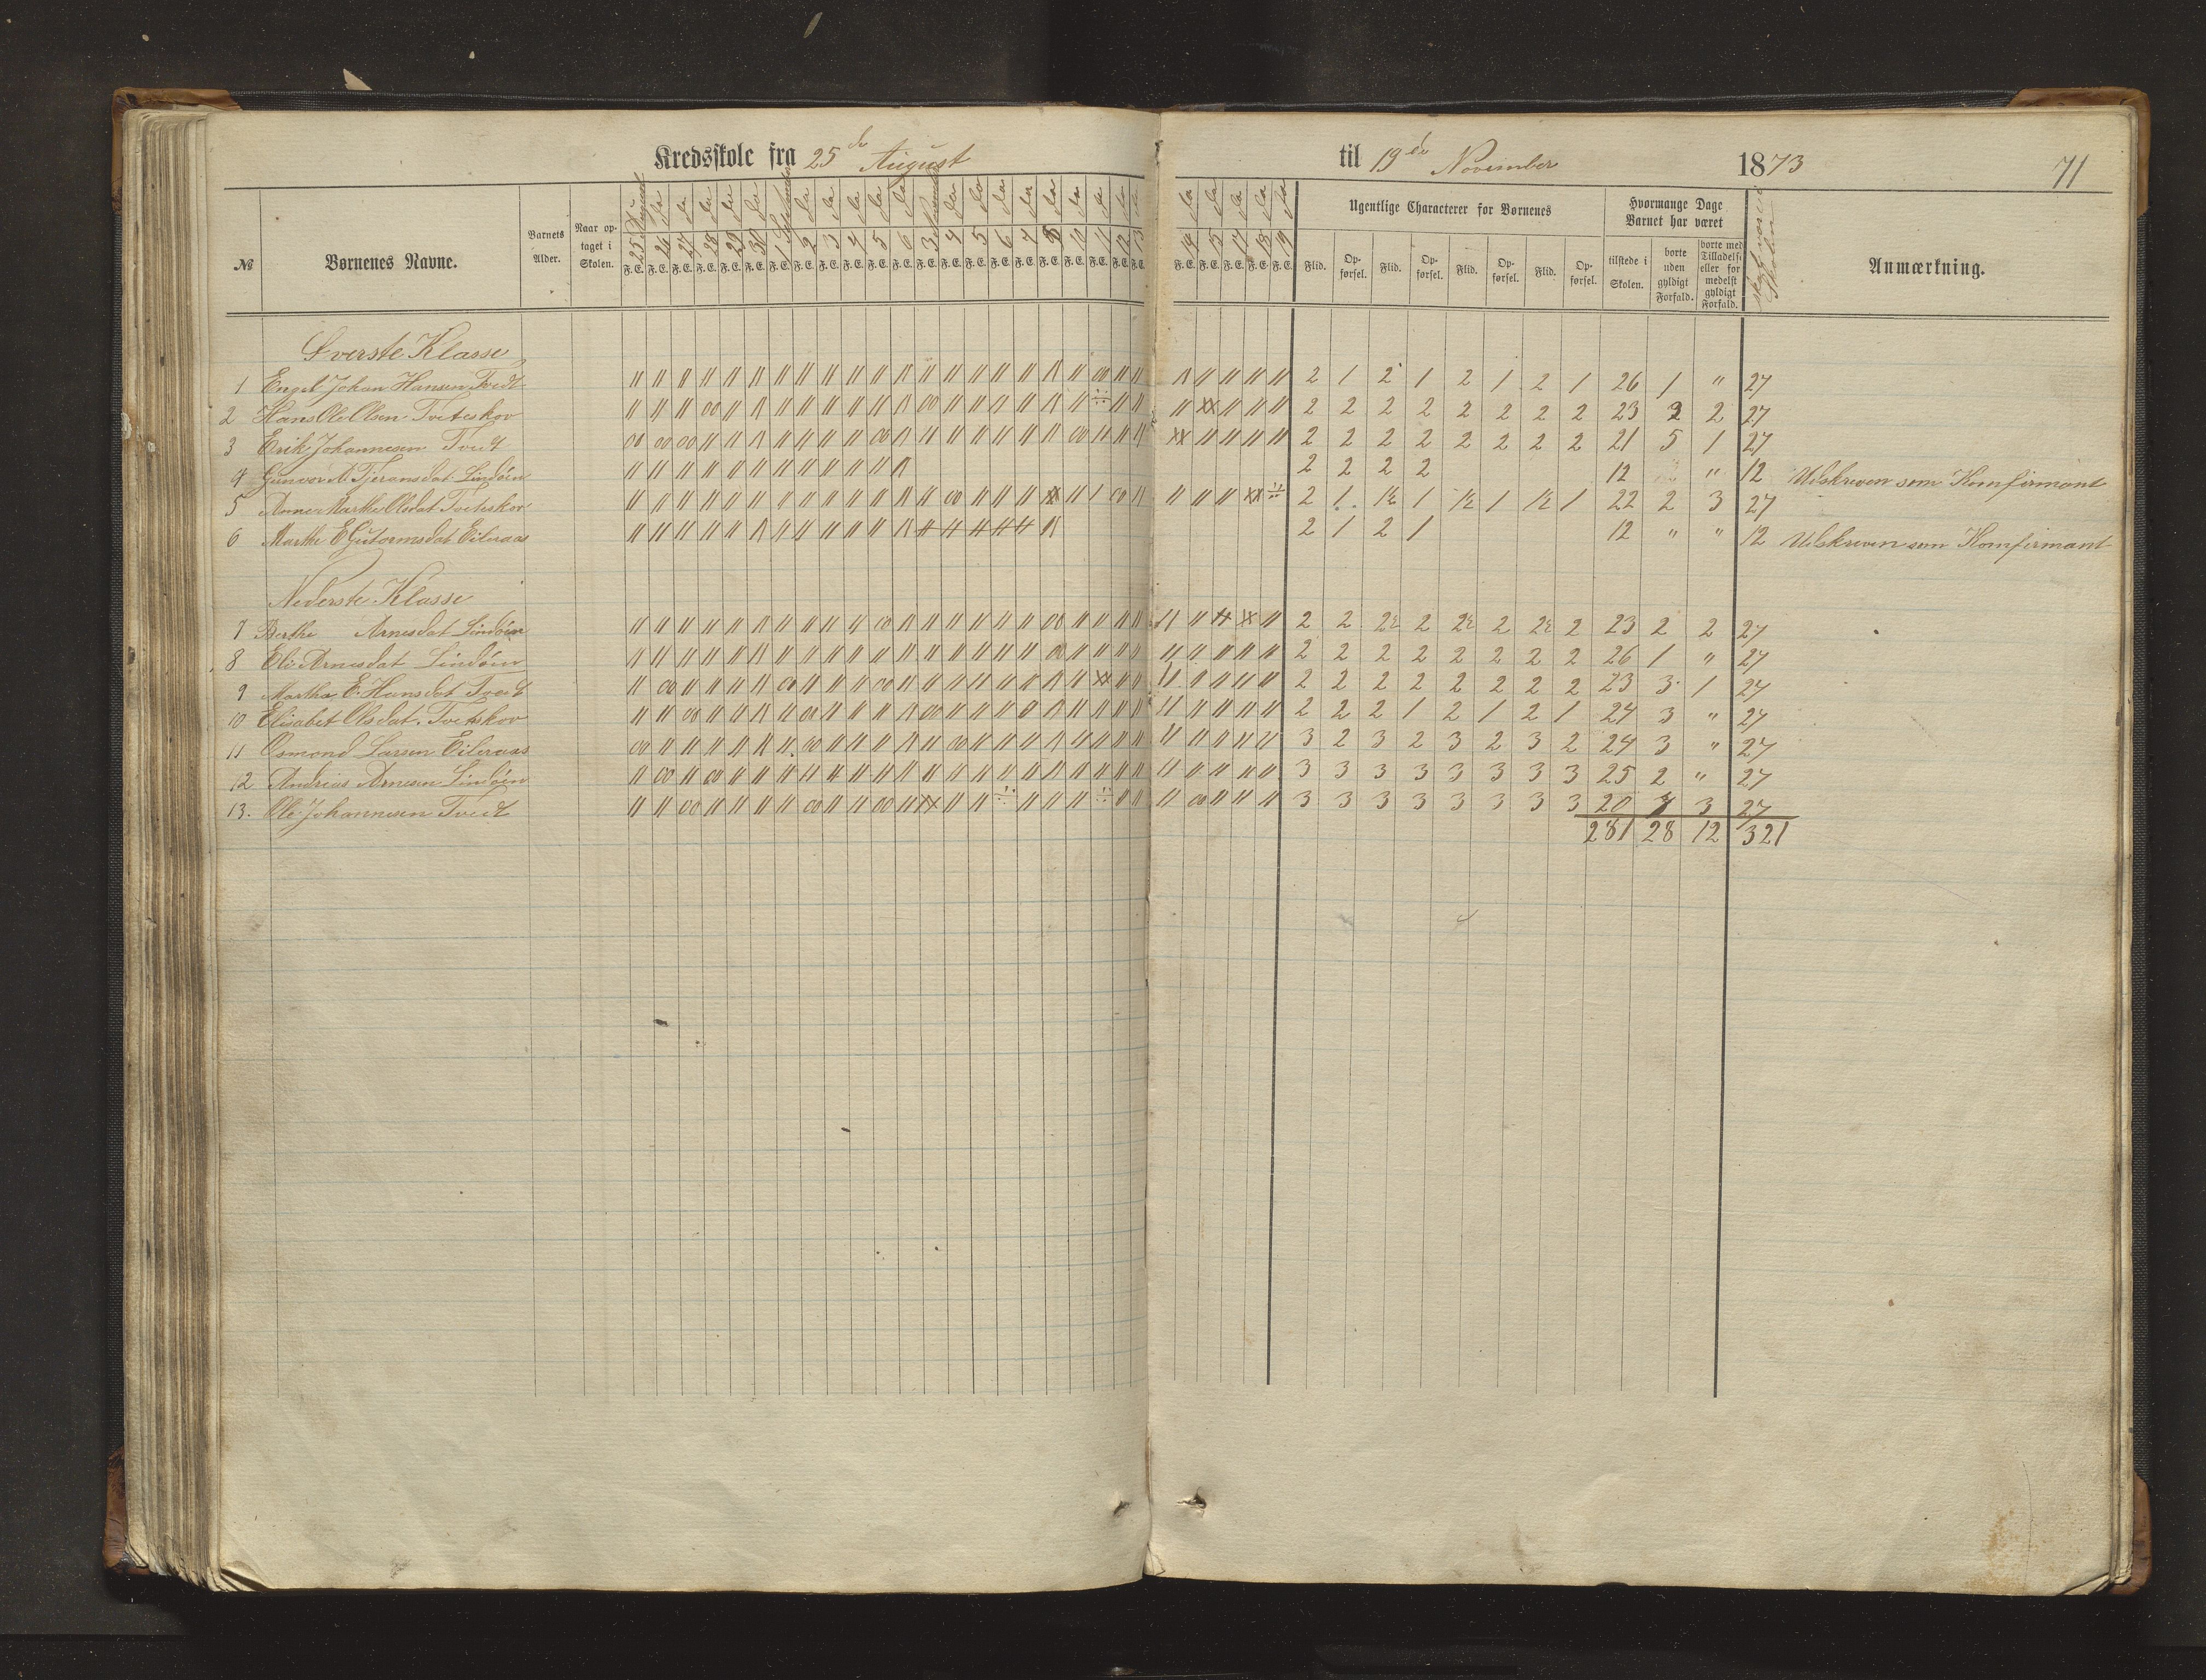 Kredsskole fra 25de August til 19de November 1873 71
№ Børnenes Navne. Barnets Alder. Naar optaget i Skolen. Ugentlige Characterer for Børnenes Hvormange Dage Barnet har været Anmærkning.
25 August 26 27 28 29 30 1 September 2 3 4 5 6 3 November 4 5 6 7 8 10 11 12 13 14 15 17 18 19
F. E. Flid. Opførsel. Flid. Opførsel. Flid. Opførsel. Flid. Opførsel. tilstede i Skolen. borte uden gyldigt Forfald. borte med Tilladelse eller formedelst gyldigt Forfald. Skolen
Øverste Klasse
1 Engel Johan Hansen Tvedt 2 1 2 1 2 1 2 1 26 1 " 27
2 Hans Ole Olsen Tveteskov 2 2 2 2 2 2 2 2 23 2 2 27
3 Erik Johannesen Tvedt 2 2 2 2 2 2 2 2 21 5 1 27
4 Gunvor A. Tjeransdat Lindøen 2 2 2 2 12 " 12 Udskreven som Komfirmant
5 Anne Marthe Olsdat Tveteskov 2 1 1½ 1 1½ 1 1½ 1 22 2 3 27
6 Marthe E Gutormsdat Eileraas 2 1 2 1 12 " " 12 Udskreven som Komfirmant
Nederste Klasse
7 Berthe Arnesdat Lindøen 2 2 2½ 2 2½ 2 2½ 2 23 2 2 27
8 Eli Arnesdat Lindøen 2 2 2 2 2 2 2 2 26 1 " 27
9 Martha E. Hansdat Tvedt 2 2 2 2 2 2 2 2 23 3 1 27
10 Elisabet Olsdat. Tvetskov 2 2 2 1 2 1 2 1 24 3 " 27
11 Osmond Larsen Eileraas 3 2 3 2 3 2 3 2 24 3 " 27
12 Andreas Arnesen Lindøen 3 3 3 3 3 3 3 3 25 2 " 27
13. Ole Johannesen Tvedt 3 3 3 3 3 3 3 3 20 4 3 27
281 28 12 321